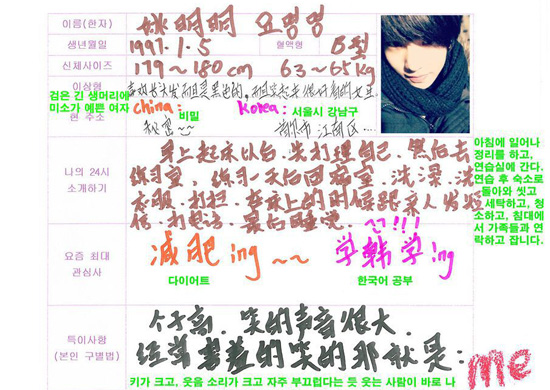 이름(한자) 姚明明 요명명
생년월일 1997.1.5 혈액형 B型
신체사이즈 179~180cm 63~65kg
이상형 喜欢长头发 而且是黑色的
검은 긴 생머리에
미소가 예쁜 여자
현 주소 China : 비밀 Korea : 서울시 강남구
秘密~~ 江南区....
나의 24시
소개하기
早上起床以后.洗打理自己.然后去
练习室.练习
洗澡.洗
衣服.打扫.在床上的时候跟家人发短
信.打电话.
아침에 일어나
정리를 하고,
연습실에 간다.
연습 후 숙소로
돌아와 씻고
세탁하고, 청
소하고, 침대에
서 가족들과 연
락하고 잡니다.
요즘 최대
관심사
减肥ing~~
다이어트
学韩字ing
한국어 공부
특이사항
(본인 구별법)
个子高.笑的声音很大.
经常害羞的笑的那就是:me
키가 크고, 웃음 소리가 크고 자주 부끄럽다는 듯 웃는 사람이 바로 나